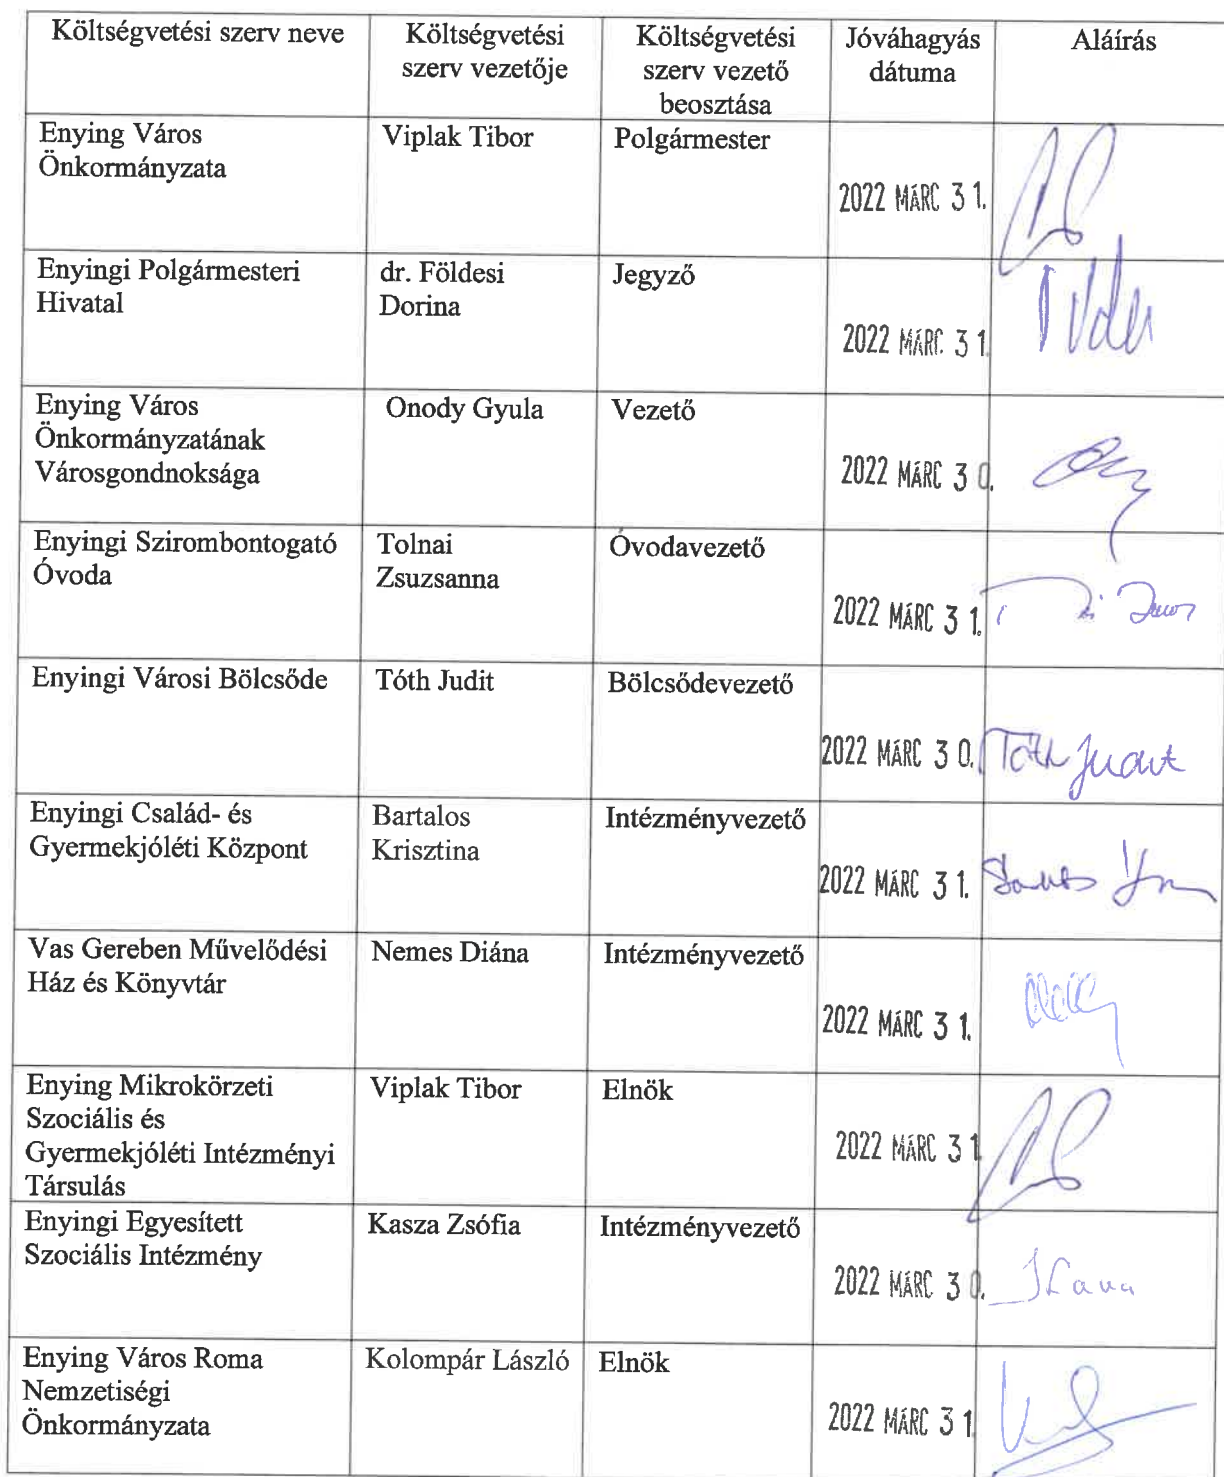 Költségvetési szerv neve
Költségvetési
szerv vezetője
Költségvetési
szerv vezető
beosztása
Jóváhagyás
dátuma
Aláírás
Enying Város
Önkormányzata
Viplak Tibor
Polgármester
2022 MÁRC 31.
Enyingi Polgármesteri
Hivatal
dr. Földesi
Dorina
Jegyző
2022 MÁRC. 31.
Enying Város
Önkormányzatának
Városgondnoksága
Onody Gyula
Vezető
2022 MÁRC 30.
Enyingi Szirombontogató
Óvoda
Tolnai
Zsuzsanna
Óvodavezető
2022 MÁRC 31.
Enyingi Városi Bölcsőde
Tóth Judit
Bölcsődevezető
2022 MÁRC 30.
Tóth Judit
Enyingi Család- és
Gyermekjóléti Központ
Bartalos
Krisztina
Intézményvezető
2022 MÁRC 31.
Vas Gereben Művelődési
Ház és Könyvtár
Nemes Diána
Intézményvezető
2022 MÁRC 31.
Enying Mikrokörzeti
Szociális és
Gyermekjóléti Intézményi
Társulás
Viplak Tibor
Elnök
2022 MÁRC 31
Enyingi Egyesített
Szociális Intézmény
Kasza Zsófia
Intézményvezető
2022 MÁRC 30.
Enying Város Roma
Nemzetiségi
Önkormányzata
Kolompár László
Elnök
2022 MÁRC 31